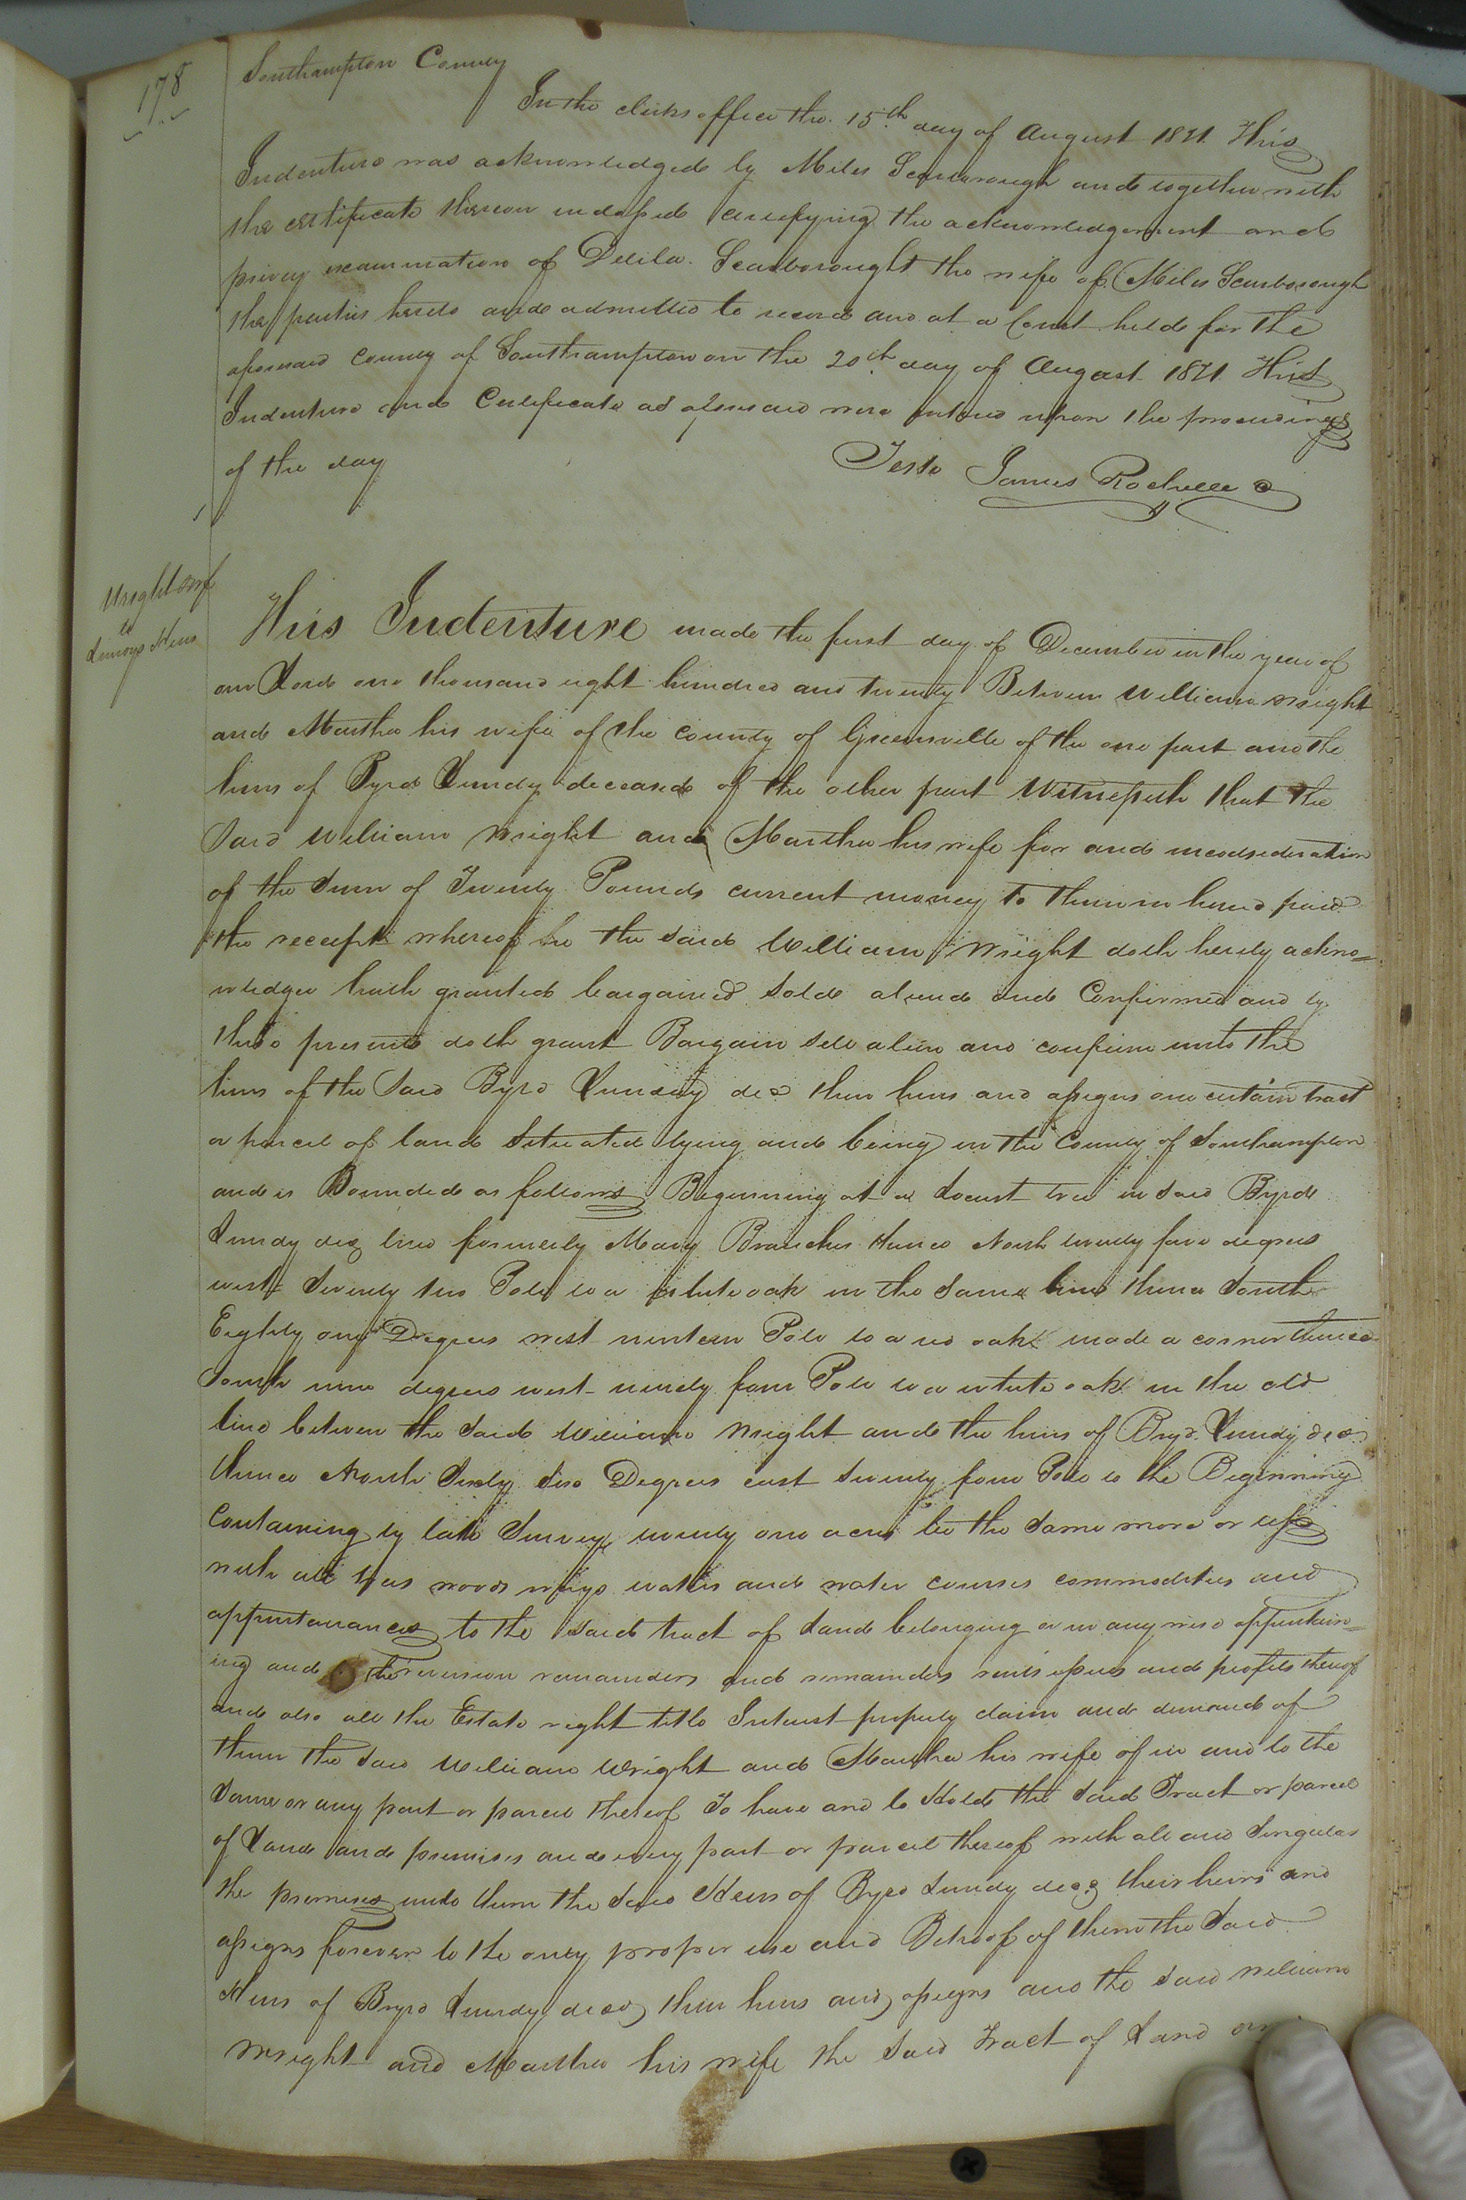 178
Southampton County
In the clerks office the 15th day of August 1821. This
Indenture was acknowledged by Miles Scarborough and together with
the certificate thereon indorsed certifying the acknowledgement and
privey examination of Delila Scarborought the wife of Miles Scarborough
the parties hereto and admitted to record and at a Court held for the
aforesaid county of Southampton on the 20th day of August 1821. This
Indenture and Certificate as aforesaid were entered upon the proceedings
of the day
Teste James Rochelle
Wright & wife
to
Lundys Heirs
This Indenture made the first day of December in the year of
our Lord one thousand eight hundred and twenty Between William Wright
and Martha his wife of the county of Greensville of the one part and the
heirs of Byrd Lundy deceased of the other part Witnesseth that the
said William Wright and Martha his wife for and in consideration
of the sum of Twenty Pounds current money to them in hand paid
the receipt whereof he the said William Wright doth hereby ackno=
wledge hath granted bargained sold aliend and Confirmed and by
these presents doth grant Bargain sell alien and confirm unto the
heirs of the said Byrd Lundy decd their heirs and assigns one certain tract
or parcel of land Situated lying and being in the County of Southampton
and is Bounded as follows Beginning at a Locust tree in said Byrd
Lundy decd line formerly Mary Branches thence North twenty four degrees
west Seventy two Pole to a white oak in the same line thence South
Eighty one Degrees west nineteen Pole to a red oak made a corner thence
South nine degrees west ninety four Pole to a white oak in the old
line between the said William Wright and the heirs of Byrd Lundy decd
thence North Sixty two Degrees east Seventy four Pole to the Beginning
Containing by late Survey twenty one acres be the same more or less
with all woods ways waters and water courses commodities and
appurtenances to the said tract of Land belonging or in any wise appertain=
ing and the reversion remainders and remainders rents issues and profits thereof
and also all the Estate right title Interest property claim and demand of
them the said William Wright and Martha his wife of in and to the
same or any part or parcel thereof To have and to Hold the said Tract or parcel
of Land and premises and every part or parcel thereof with all and Singular
the premises unto them the said Heirs of Byrd Lundy decd their heirs and
assigns forever to the only proper use and Behoof of them the said
Heirs of Byrd Lundy decd their heirs and assigns and the said William
Wright and Martha his wife the said Tract of Land